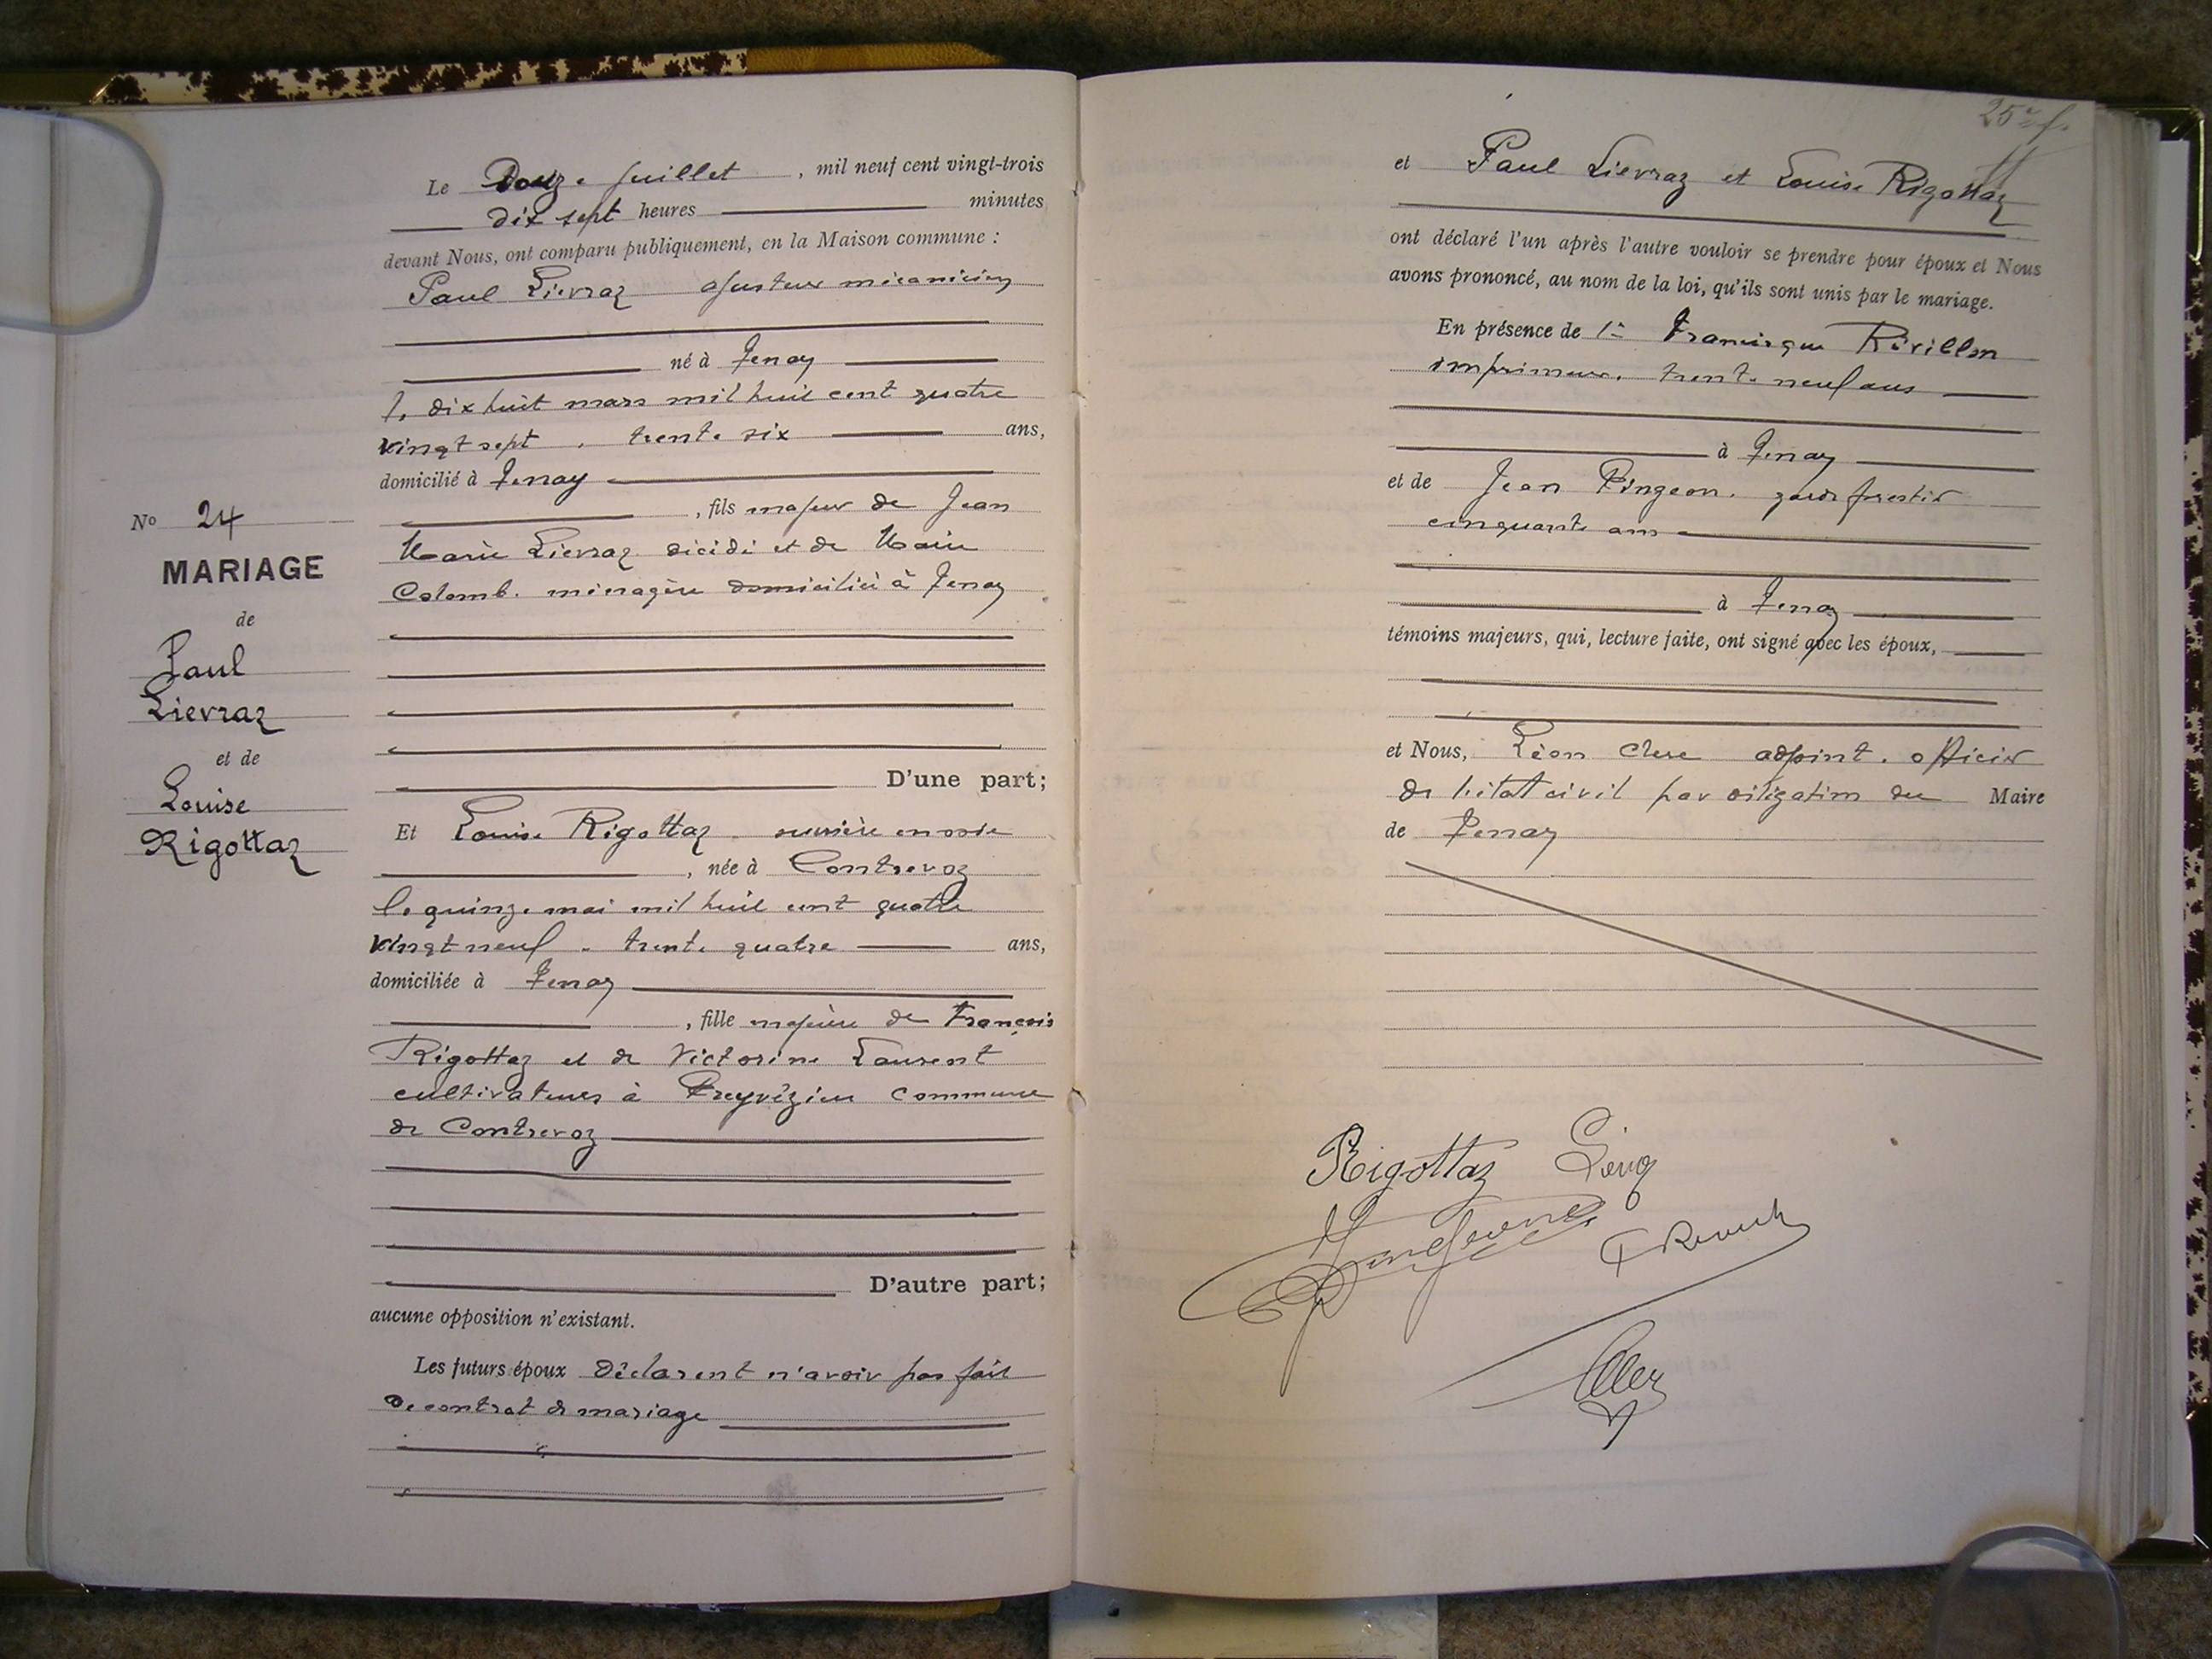 Le Douze Juillet, mil neuf cent vingt-trois
dix sept heures minutes
devant Nous, ont comparu publiquement, en la Maison commune :
Paul Lievraz ajusteur mécanicien
né à Tenay
le dix huit mars mil huit cent quatre
vingt sept, trente six ans,
domicilié à Tenay
, fils majeur de Jean
Marie Lievraz décédé et de Marie
Colomb. ménagère domiciliée à Tenay
D'une part;
Et Louise Rigottaz. ouvrière en soie
, née à Contrevoz
le quinze mai mil huit cent quatre
vingt neuf. trente quatre ans,
domiciliée à Tenay
, fille majeure de François
Rigottaz et de Victorine Laurent
cultivateurs à Preyvézieu commune
de Contrevoz
D'autre part;
aucune opposition n'existant.
Les futurs époux déclarent n'avoir pas fait
de contrat de mariage
No 24
MARIAGE
de
Paul
Lievraz
et de
Louise
Rigottaz
et Paul Lievraz et Louise Rigottaz
ont déclaré l'un après l'autre vouloir se prendre pour époux et Nous
avons prononcé, au nom de la loi, qu'ils sont unis par le mariage.
En présence de 1° Francisque Révillon
imprimeur. trente neuf ans
à Tenay
et de Jean Pingeon. garde forestier
cinquante ans
à Tenay
témoins majeurs, qui, lecture faite, ont signé avec les époux,
et Nous, Léon Clerc adjoint. officier
de l'état civil par délégation du Maire
de Tenay
Rigottaz